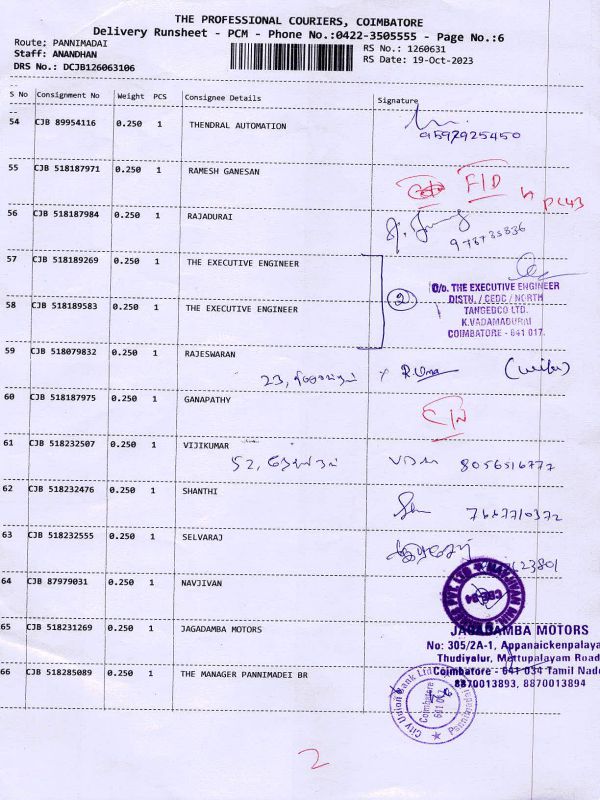 THE PROFESSIONAL COURIERS, COIMBATORE
Delivery Runsheet - PCM - Phone No.:0422-3505555 - Page No.:6
Route; PANNIMADAI
RS No.: 1260631
Staff: ANANDHAN
RS Date: 19-Oct-2023
DRS No.: DCJB126063106
S No Consignment No Weight PCS Consignee Details Signature
54 CJB 89954116 0.250 1 THENDRAL AUTOMATION
9597925450
55 CJB 518187971 0.250 1 RAMESH GANESAN F/D
56 CJB 518187984 0.250 1 RAJADURAI
57 CJB 518189269 0.250 1 THE EXECUTIVE ENGINEER
2
O/o. THE EXECUTIVE ENGINEER
DISTN. / CEDC / NORTH
TANGEDCO LTD.
K.VADAMADURAI
COIMBATORE - 641 017.
58 CJB 518189583 0.250 1 THE EXECUTIVE ENGINEER
59 CJB 518079832 0.250 1 RAJESWARAN
23, R.Uma (wife)
60 CJB 518187975 0.250 1 GANAPATHY
61 CJB 518232507 0.250 1 VIJIKUMAR
52, 8056516777
62 CJB 518232476 0.250 1 SHANTHI
7667710372
63 CJB 518232555 0.250 1 SELVARAJ
64 CJB 87979031 0.250 1 NAVJIVAN
65 CJB 518231269 0.250 1 JAGADAMBA MOTORS
JAGADAMBA MOTORS
No: 305/2A-1, Appanaickenpalaya
Thudiyalur, Mettupalayam Road
Coimbatore - 641 034 Tamil Nadu
8870013893, 8870013894
66 CJB 518285089 0.250 1 THE MANAGER PANNIMADEI BR
City Union Bank Ltd
Coimbatore
2